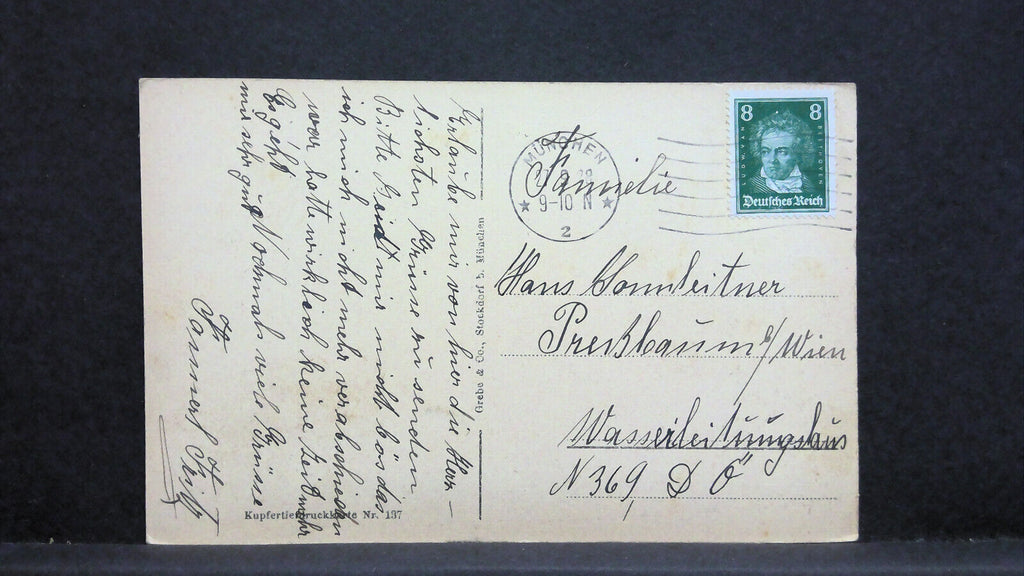 Erlaube mir von hier die Herz-
lichsten Grüsse zu senden
Bitte seid mir nicht bös das
ich mich nicht mehr verabschieden
war hatte wirklich keine Zeit mehr
Es geht
mir sehr gut Nochmals viele Grüsse
Kupfertiefdruckkarte Nr. 137
Grebe & Co., Stockdorf b. München
MÜNCHEN
9-10 N
2
8 8
LUDW. VAN BEETHOVEN
Deutsches Reich
Familie
Hans Sonnleitner
Preßbaum b/Wien
Wasserleitungshus
N 369, D Ö